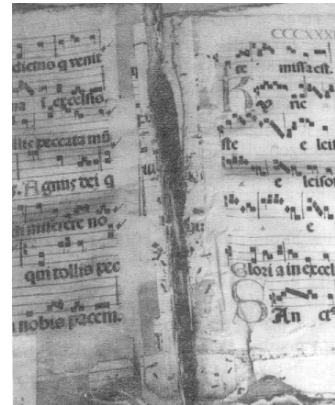 dictus q venit
na i excelsis
llis peccata mū
s. Agnus dei q
di miserere no
qui tollis pec
a nobis pacem.
CCCXXX
te missa est.
K y rie
ste e leiso
e leiso
e leison
Glori a in excel
S An ct